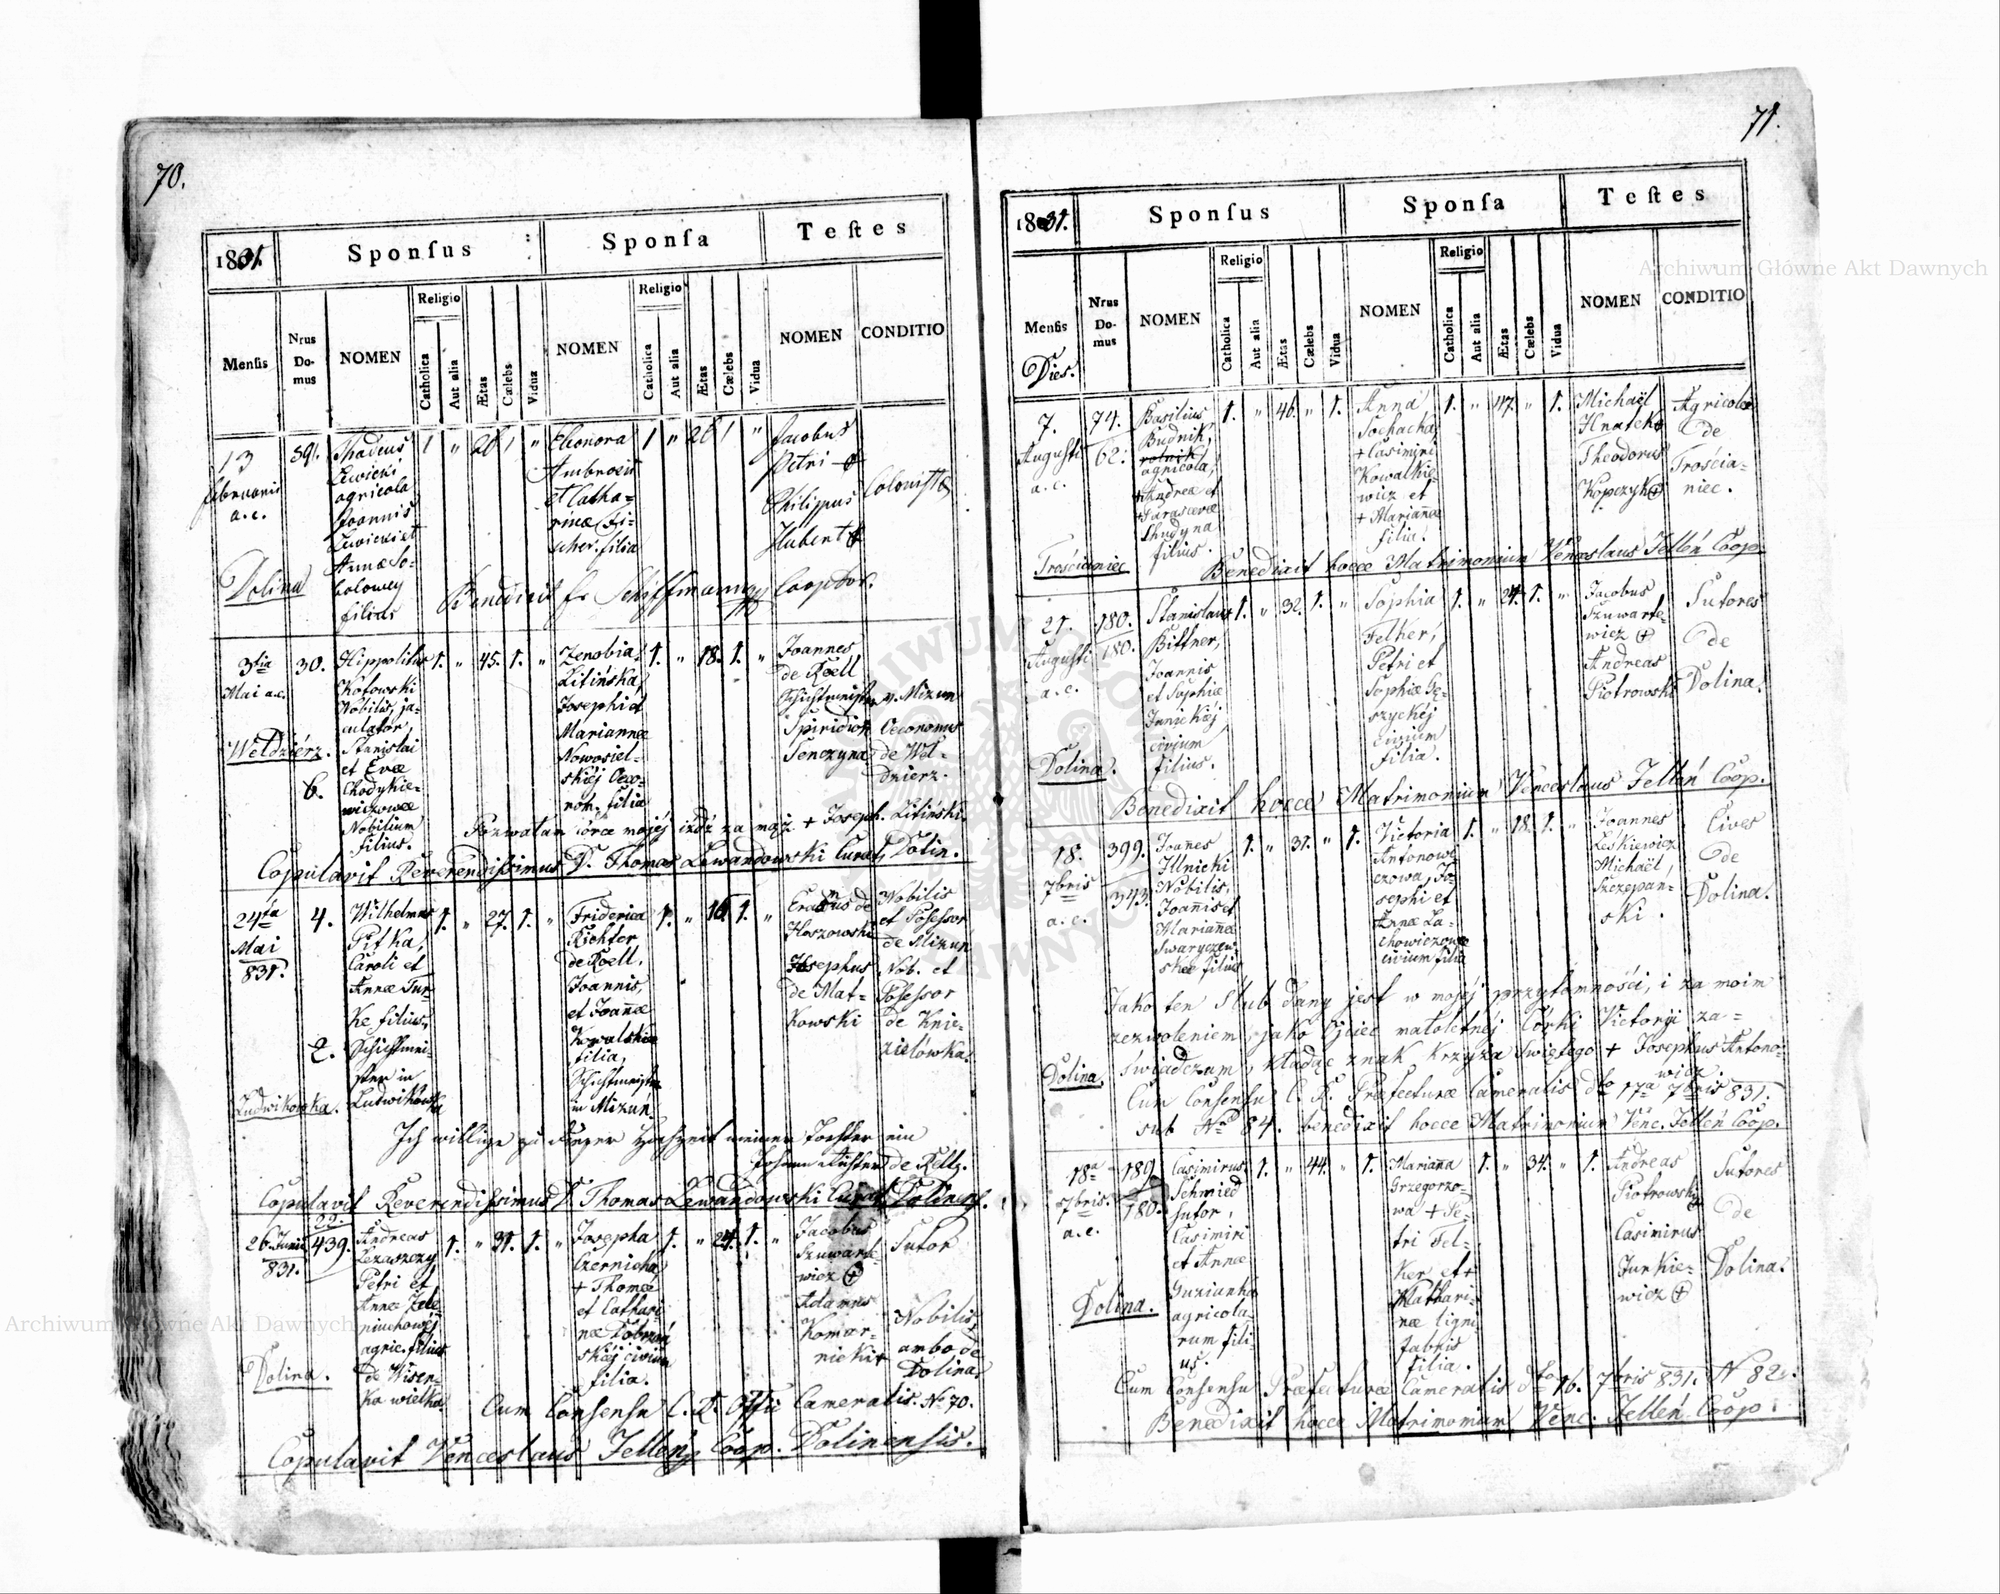 70.
1831.
Sponſus
Sponſa
Teſtes
Menſis
Nrus Domus
NOMEN
Religio
Catholica
Aut alia
Ætas
Cælebs
Vidua
NOMEN
Religio
Catholica
Aut alia
Ætas
Cælebs
Vidua
NOMEN
CONDITIO
13
februarii
a.c.
Dolina
391.
Thadeus
Lewicki
agricola
Joannis
Lewicki et
Annæ So-
filius
1 " 26 1 "
Eleonora
Ambrosii
et Catha-
rinæ Fi-
scher filia
1 " 26 1 "
Jacobus
Petri +
Philippus
Hubert +
Colonistæ
Benedixit fr Schiffmann Cooptor.
3tia
Mai a.c.
Wełdzirz.
30.
6.
Hippolitus
Kotowski
Nobilis, ja-
culator,
Stanislai
et Evæ
Chodykie-
wiczowæ
Nobilium
filius.
1. " 45. 1. "
Zenobia
Litińska,
Josephi et
Mariannæ
Nowosiel-
skiéj Oeco-
nom. filia
1. " 18. 1. "
Joannes
de Roell
Schichtmeister v. Mizun
Spiridion
Senczyna
Oeconomus
de Wel-
dzierz.
Pozwalam Córce mojéj iśdź za mąż + Joseph. Litiński.
Copulavit Reverendissimus D. Thomas Lewandowski Curat. Dolin.
24ta
Mai
831.
Ludwikowka.
4.
2.
Wilhelmus
Pitka,
Caroli et
Annæ Tur-
ke filius,
Schichtmei-
ster in
Ludwikowka
1. " 27. 1. "
Friderica
Richter
de Roell.
Joannis,
et Joannæ
Kowalskie
filia,
Schichtmeister
in Mizuń.
1. " 16. 1. "
Erasmus de
Hoszowski
Josephus
de Mat-
kowski
Nobilis
et Posessor
de Mizuń
Nob. et
Posessor
de Knie-
ziołówka.
Ich willige zu dieser Hochzeit meiner Tochter ein
Johann Richter de Rell.
Copulavit Reverendissimus D. Thomas Lewandowski Curat. Dolinens.
26. Junii
831.
Dolina.
22.
439.
Andreas
Petri et
Annæ Zele-
niuchowéj
agric. filius
de Wisen-
ka wielka.
1. " 31. 1. "
Josepha
Czernicha
+ Thomæ
et Cathari-
næ Dobrzań
skiéj civium
filia.
1. " 24. 1. "
Jacobus
Szuwart-
wicz +
Adamus
Komar-
nicki +
Sutor
Nobilis,
ambo de
Dolina
Cum Consensu C. R. Offii Cameralis. No 70.
Copulavit Venceslaus Jelleń Coop. Dolinensis.
71.
1831.
Sponſus
Sponſa
Teſtes
Menſis
Dies.
Nrus Domus
NOMEN
Religio
Catholica
Aut alia
Ætas
Cælebs
Vidua
NOMEN
Religio
Catholica
Aut alia
Ætas
Cælebs
Vidua
NOMEN
CONDITIO
7.
Augusti
a.c.
Trościaniec
74.
62.
Basilius
Budnik,
rolnik
agricola,
+ Andreæ et
+ Parascevæ
Skudyna
filius.
1. " 46. " 1.
Anna
Sochacha,
+ Casimiri
Kowalkie-
wicz et
+ Mariannæ
filia.
1. " 47. " 1.
Michaël
Hnatek +
Theodorus
Kopczyk +
Agricolæ
de
Trościa-
niec.
Benedixit hocce Matrimonium Venceslaus Jelleń Coop.
21.
Augusti
a.c.
Dolina.
180.
180.
Stanislaus
Bittner,
Joannis
et Sophiæ
Janickiéj
civium
filius.
1. " 32. 1. "
Sophia
Felker,
Petri et
Sophiæ Ge-
szyckiéj
civium
filia.
1. " 24. 1. "
Jacobus
Szuwarte-
wicz +
Andreas
Piotrowski
Sutores
de
Dolina.
Benedixit hocce Matrimonium Venceslaus Jelleń Coop.
18.
7bris
a.c.
Dolina.
399.
343.
Joannes
Ilnicki
Nobilis,
Joannis et
Mariannæ
Swaryczew-
skæ filius
1. " 31. " 1.
Victoria
Antonowi-
czowa, Jo-
sephi et
Annæ La-
chowiczowæ
civium filia
1. " 18. 1. "
Joannes
Leśkiewicz
Michaël,
Szczepan-
ski.
Cives
de
Dolina.
Jako ten Slub dany jest w mojéj przytomności, i za moim
zezwoleniem, jako Ojciec małoletnéj Córki Victoryi za-
świadczam, kładąc znak krzyża Swiętego + Josephus Antono-
wicz.
Cum Consensu C. R. Præfecturæ Cameralis dto 17a 7bris 831.
sub No 84. benedixit hocce Matrimonium Venc. Jelleń Coop.
18a
7bris.
a.c.
Dolina.
189
180.
Casimirus
Schmied
sutor,
Casimiri
et Annæ
Guzianka
agricola-
rum fili-
us.
1. " 44. " 1.
Marianna
Grzegorzo-
wa + Pe-
tri Fel-
ker et +
Kathari-
næ ligni
fabris
filia.
1. " 34. " 1.
Andreas
Piotrowski
Casimirus
Jurkie-
wicz +
Sutores
de
Dolina.
Cum Consensu Præfecturæ Cameralis dto 16. 7bris 831. N 82.
Benedixit hocce Matrimonium Venc. Jelleń Coop.
Archiwum Główne Akt Dawnych
Archiwum Główne Akt Dawnych